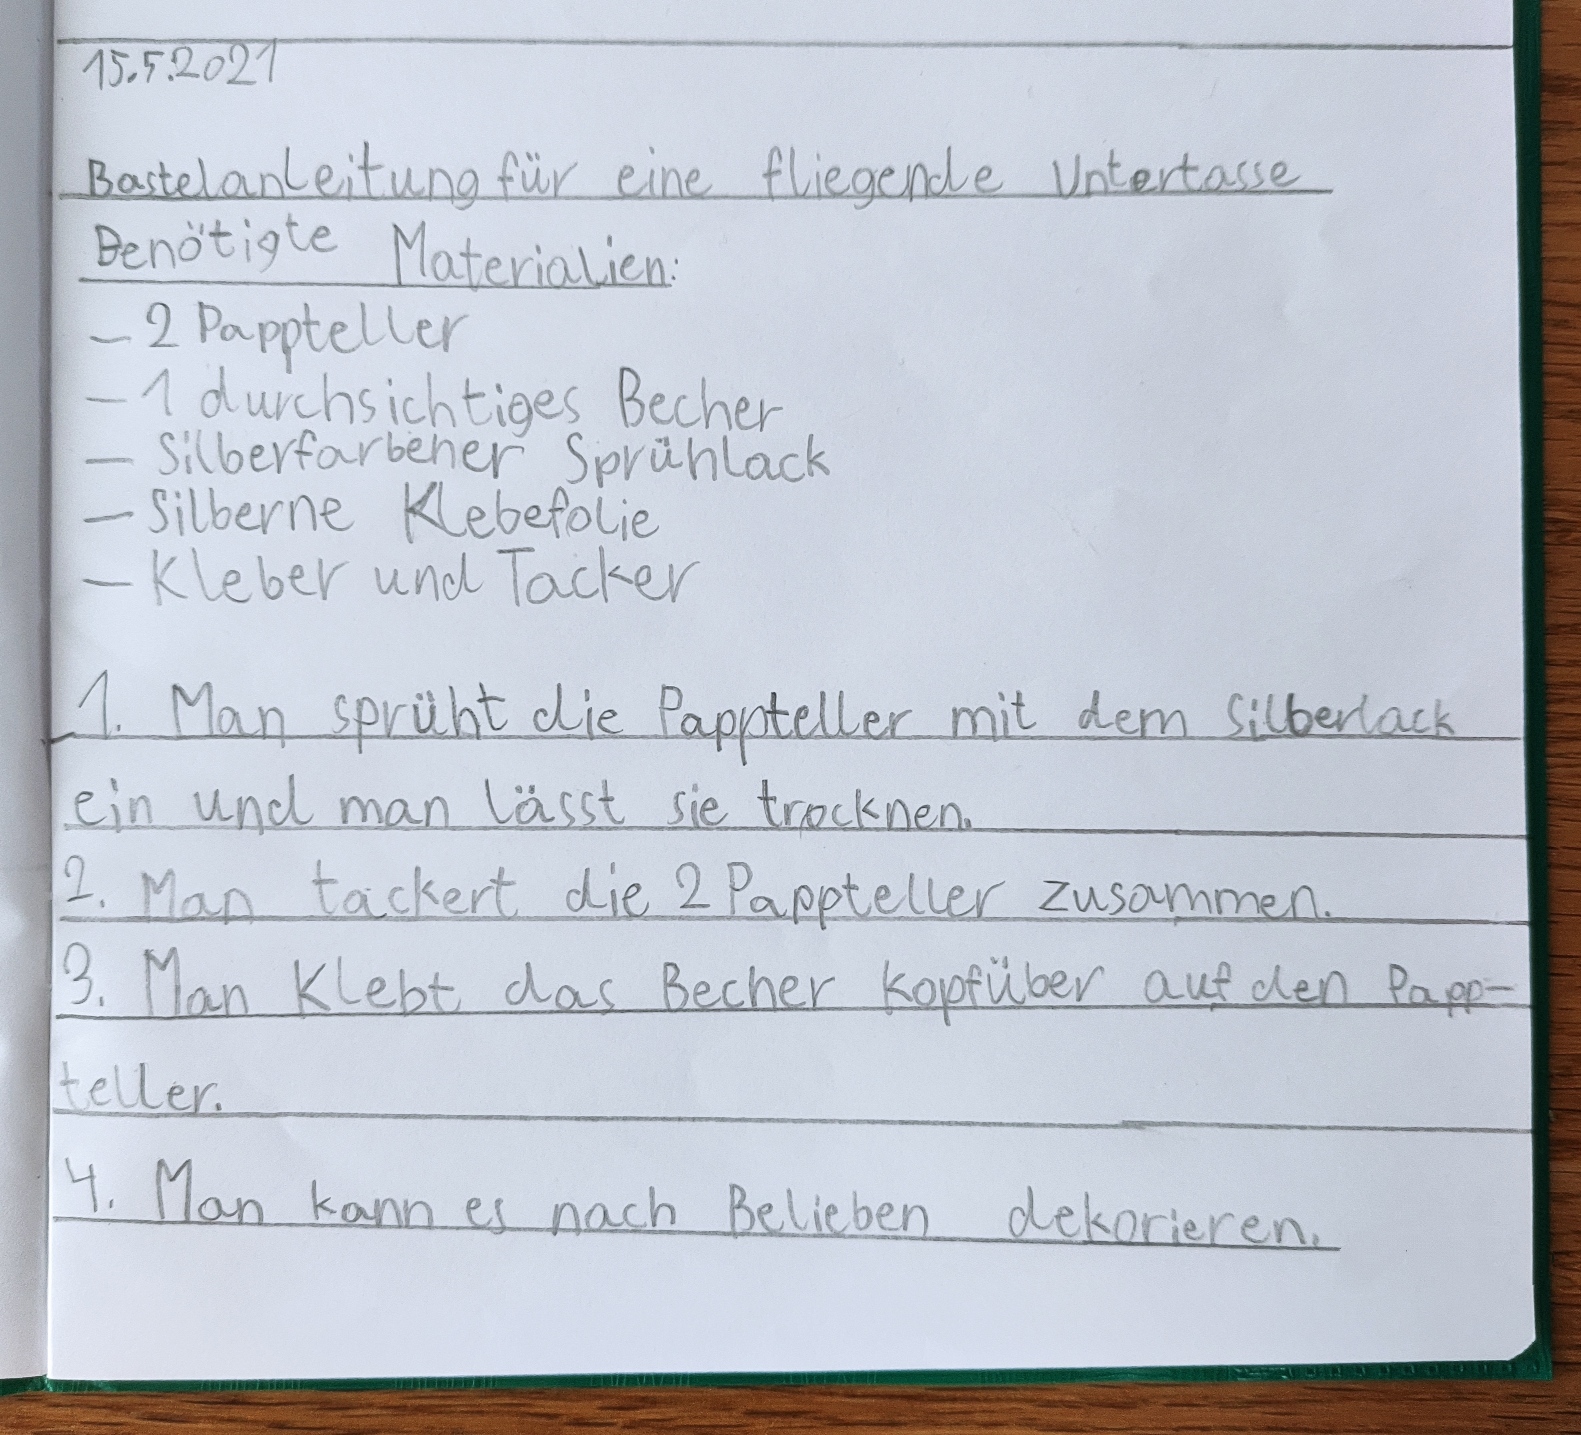 15.5.2021
Bastelanleitung für eine fliegende Untertasse
Benötigte Materialien:
- 2 Pappteller
- 1 durchsichtiges Becher
- Silberfarbener Sprühlack
- Silberne Klebefolie
- Kleber und Tacker
1. Man sprüht die Pappteller mit dem Silberlack
ein und man lässt sie trocknen.
2. Man tackert die 2 Pappteller zusammen.
3. Man Klebt das Becher Kopfüber auf den Papp-
teller.
4. Man kann es nach Belieben dekorieren.